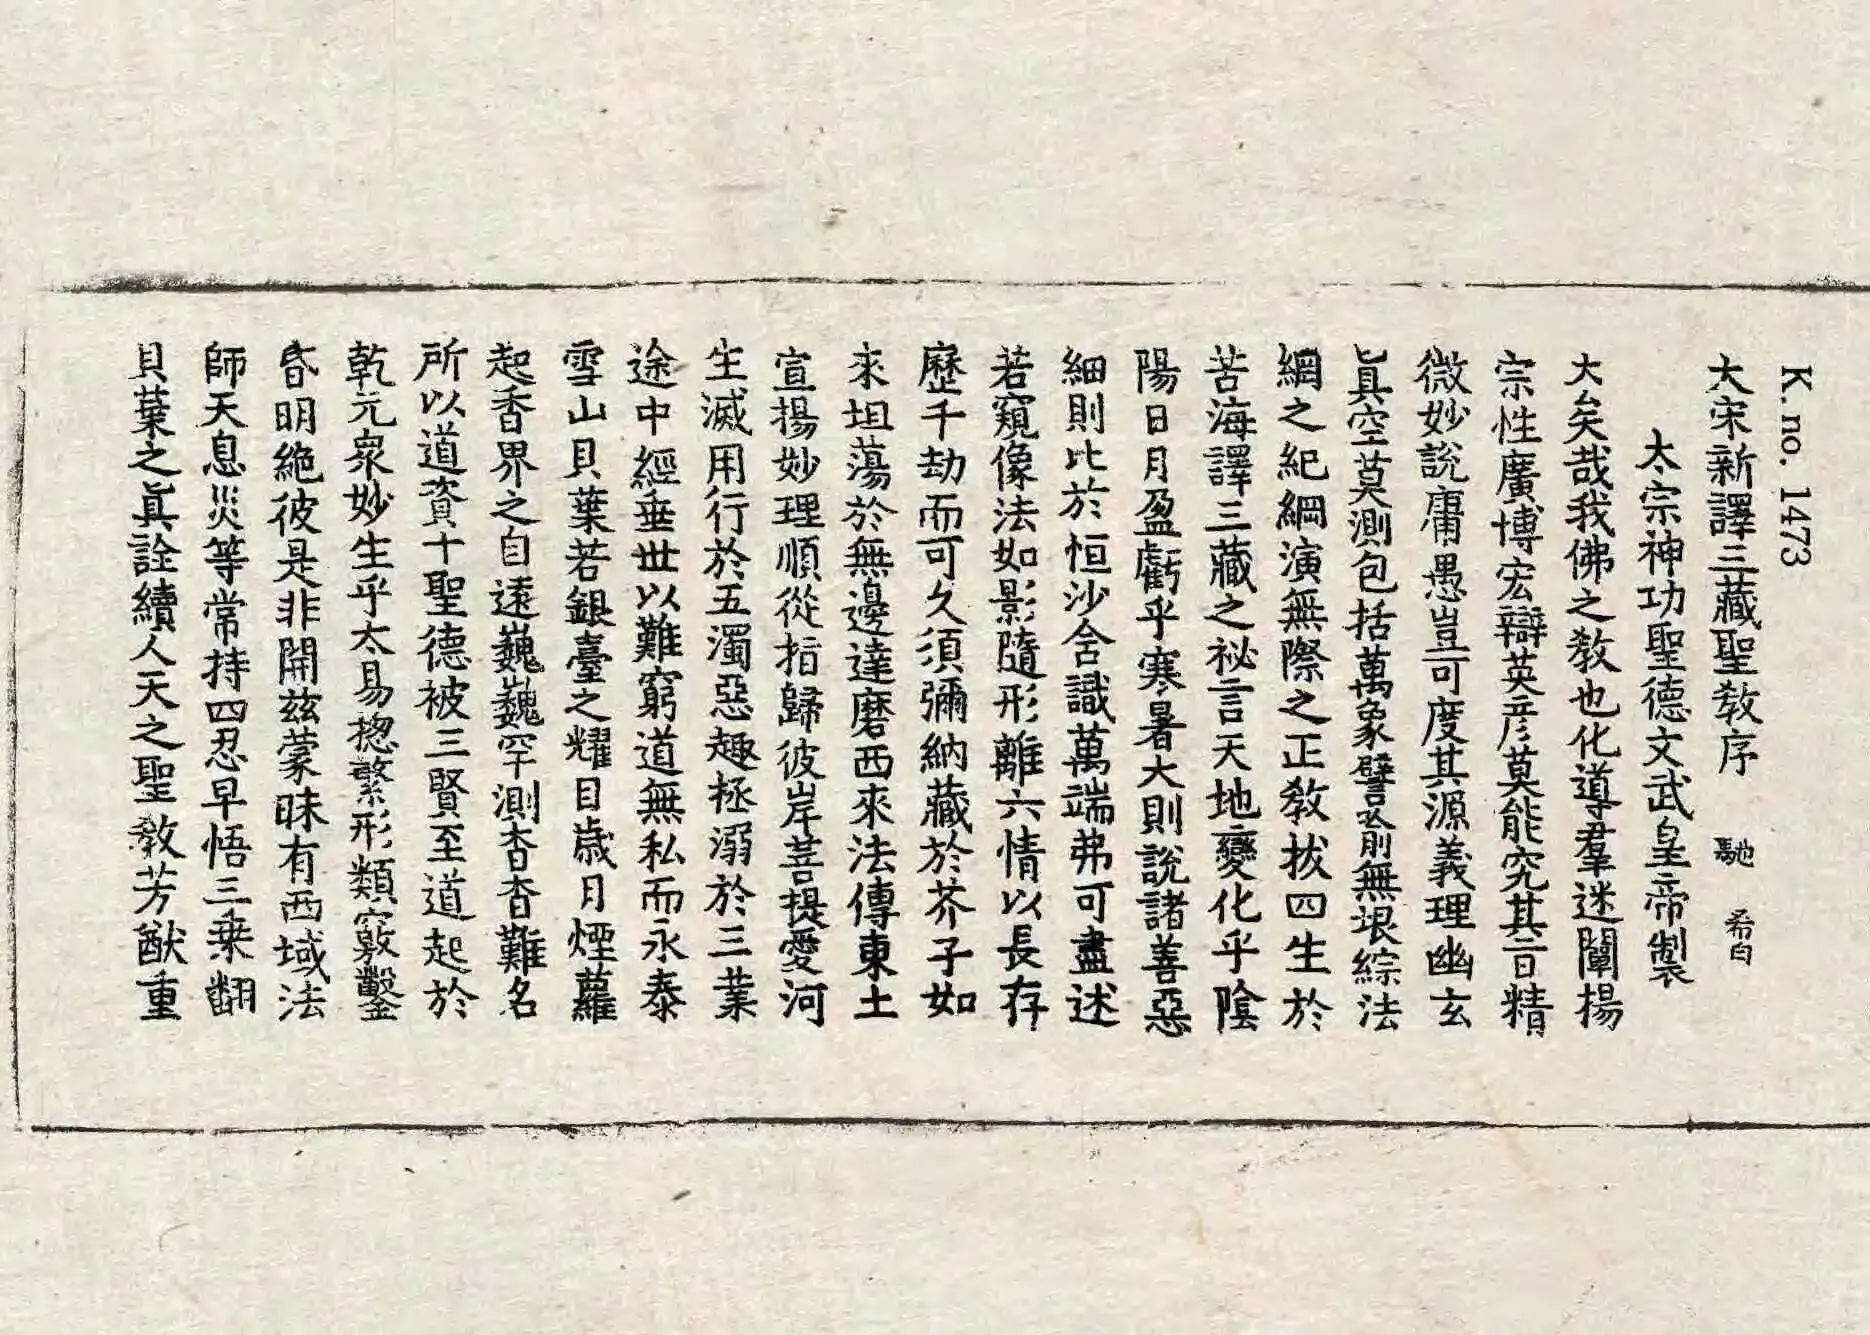 K. no. 1473
大宋新譯三藏聖敎序 馳 希白
太宗神功聖德文武皇帝製
大矣哉我佛之敎也化導羣迷闡揚
宗性廣博宏辯英彦莫能究其旨精
微妙說庸愚豈可度其源義理幽玄
眞空莫測包括萬象譬喩無垠綜法
網之紀綱演無際之正敎拔四生於
苦海譯三藏之祕言天地變化乎陰
陽日月盈虧乎寒暑大則說諸善惡
細則比於恒沙含識萬端弗可盡述
若窺像法如影隨形離六情以長存
歷千劫而可久須彌納藏於芥子如
來坦蕩於無邊達磨西來法傳東土
宣揚妙理順從指歸彼岸菩提愛河
生滅用行於五濁惡趣拯溺於三業
途中經垂世以難窮道無私而永泰
雪山貝葉若銀臺之耀目歲月煙蘿
起香界之自遠巍巍罕測杳杳難名
所以道資十聖德被三賢至道起於
乾元衆妙生乎太易揔繁形類竅鑿
昏明絶彼是非開玆蒙昧有西域法
師天息災等常持四忍早悟三乗翻
貝葉之眞詮續人天之聖敎芳猷重